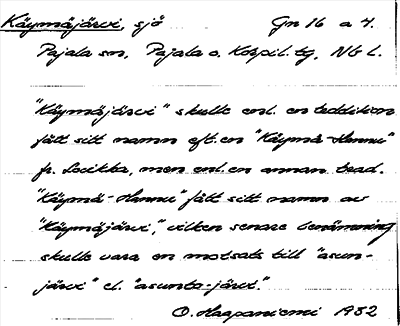 Käymäjärvi, sjö Gn 16 a 4.
Pajala sn, Pajala o. Korpil. tg, Nb l.
"Käymäjärvi" skulle enl. en tradition
fått sitt namn eft. en "Käymä-Hannu"
fr. Lovikka, men enl. en annan trad.
"Käymä-Hannu" fått sitt namn av
"Käymäjärvi," vilken senare benämning
skulle vara en motsats till "asun-
järvi" el. "asunto-järvi."
O. Haapaniemi 1932